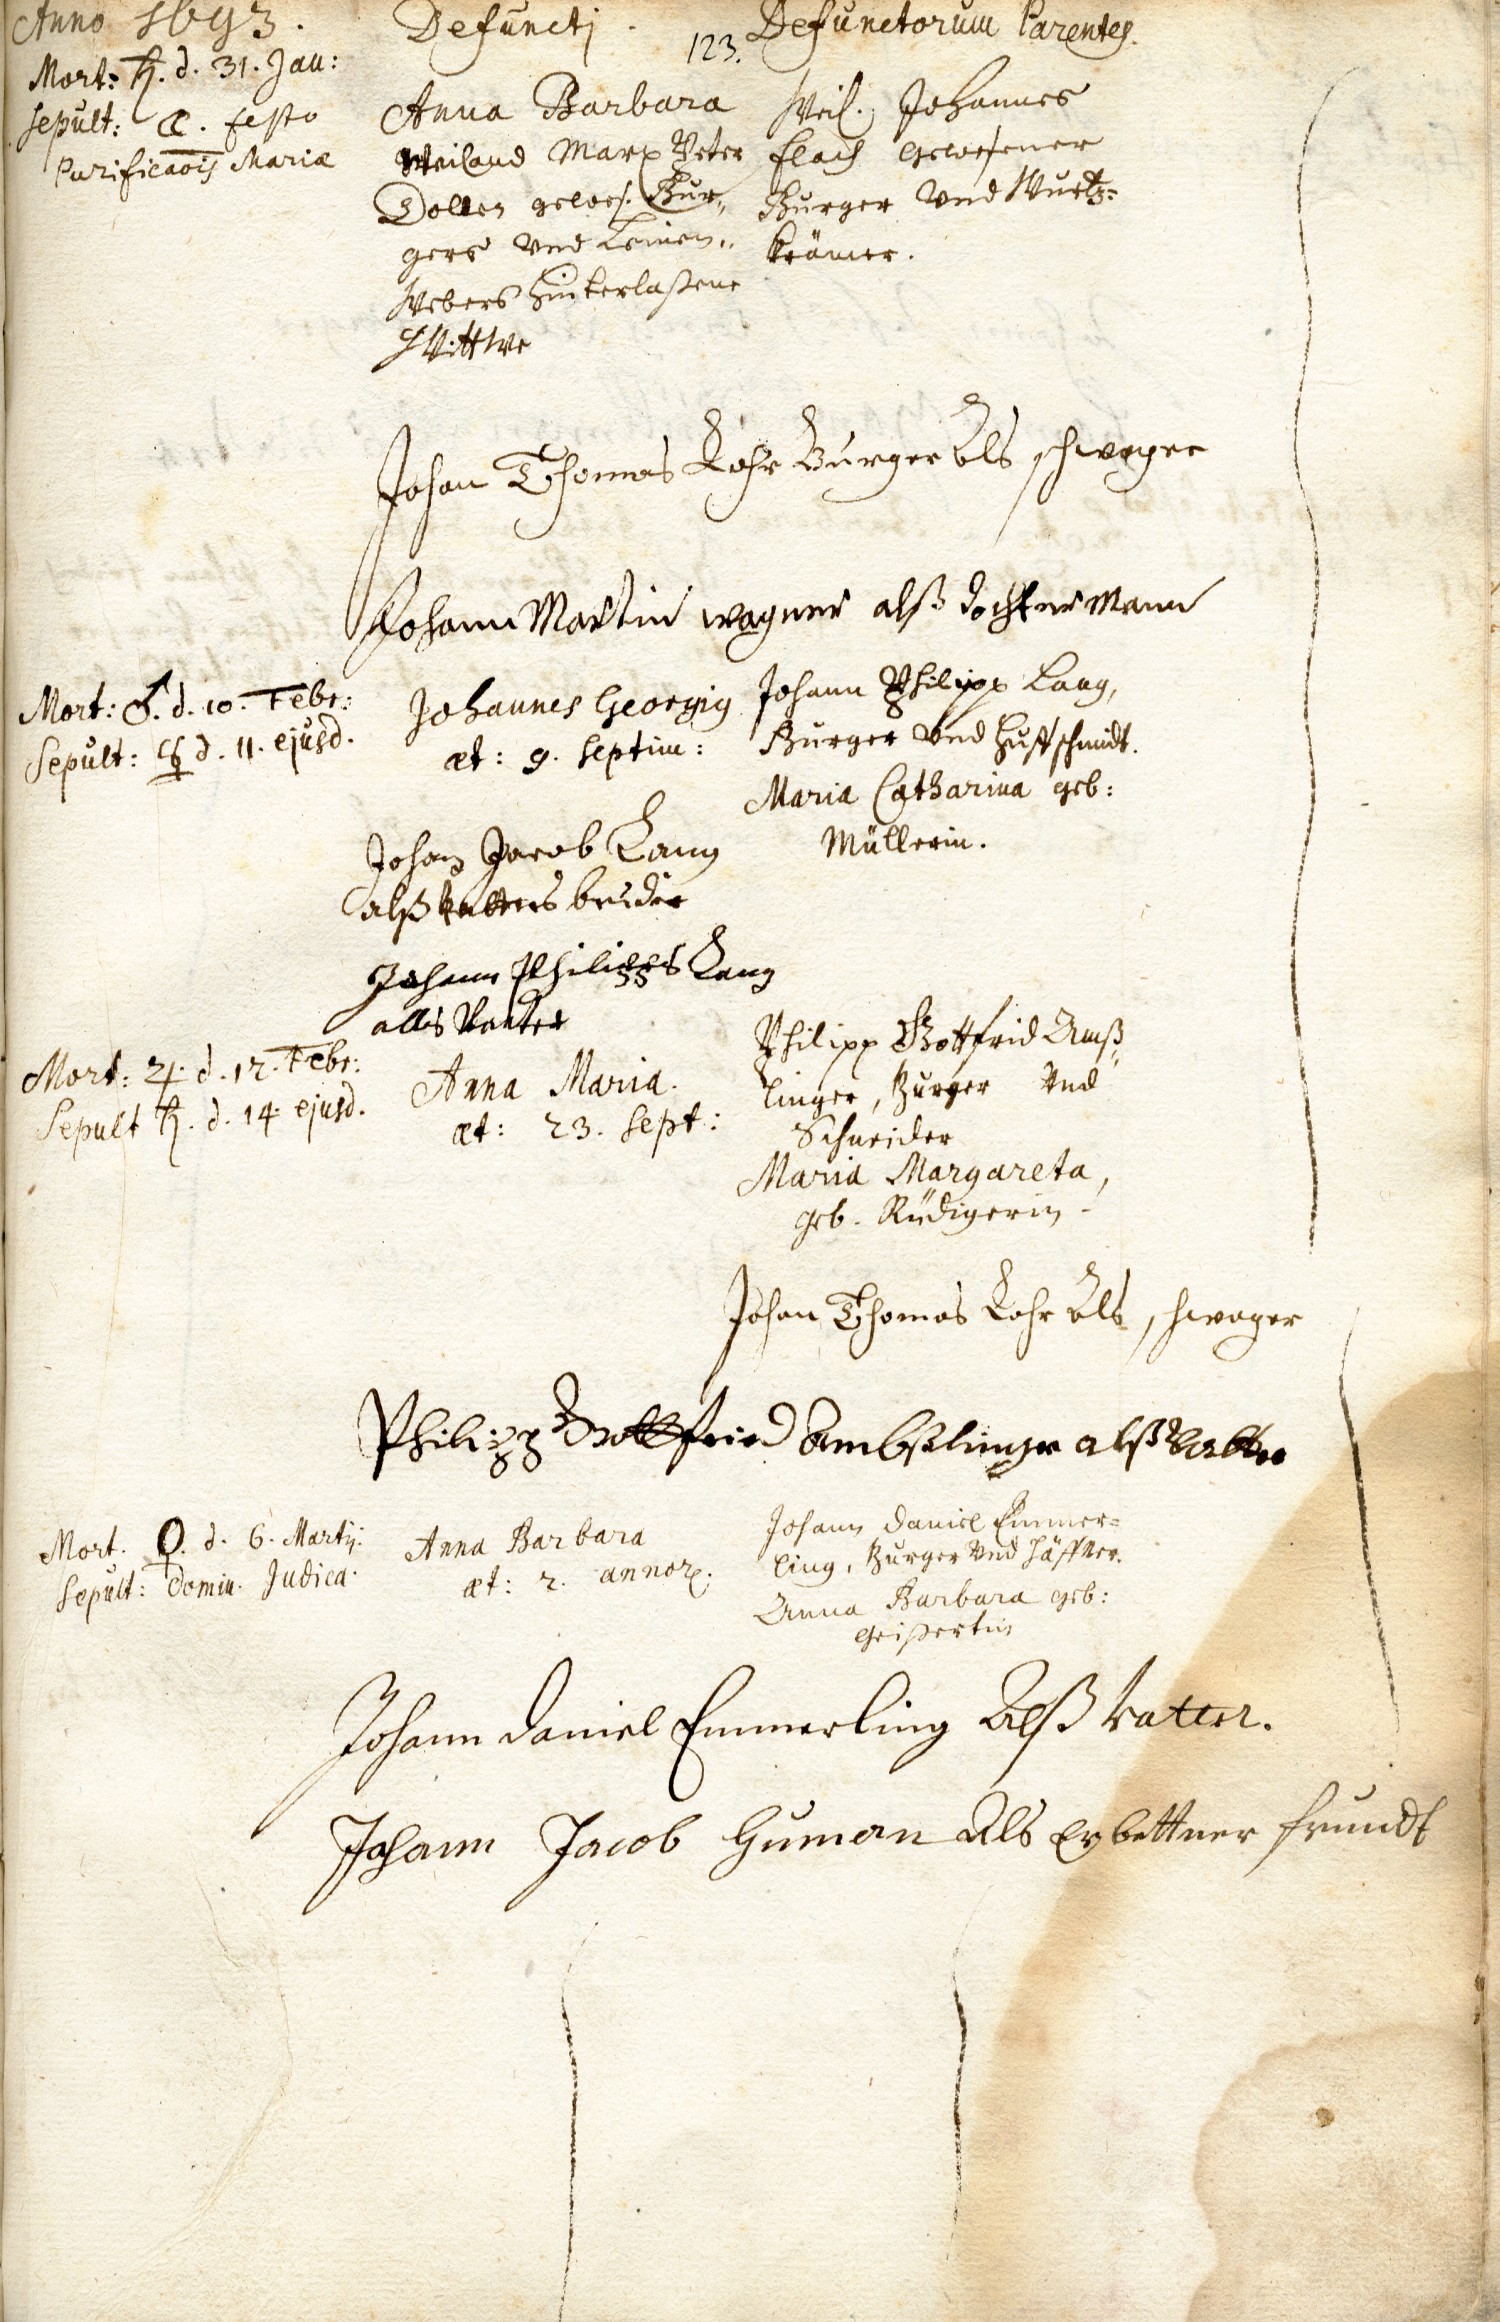 Anno 1693. Defuncti. 123. Defunctorum Parentes.
Mort: ♄. d. 31. Jan:
Sepult: ☾. festo
Purificaōis Mariæ
Anna Barbara
Weiland Marx Peter
Dollen gewes. Bur„
gers vnd Leinen„
Webers hinterlaßene
Wittwe
Weil. Johannes
Flach gewesener
Burger vnd Wurtz=
krämer.
Johan Thomas Lohr Burger als schwager
Johann Martin wagner alß dochterMann
Mort: ♂. d. 10. Febr:
Sepult: ☿ d. 11. ejusd.
Johannes Georgig
æt: 9. Septim:
Johann Philipp Lang,
Burger vnd Huffschmidt.
Maria Catharina geb:
Müllerin.
Johan Jacob Lang
alß vatters bruder
Johann Philipps Lang
alls Vatter
Mort: ♃. d. 12. Febr:
Sepult ♄. d. 14. ejusd.
Anna Maria.
æt: 23. Sept:
Philipp Gottfrid Amß„
linger, Burger vnd
Schneider
Maria Margareta,
geb. Rüdigerin.
Johan Thomas Lohr als schwager
Philipp Gottfried Ambslinger alß Vatter
Mort. ♀. d. 6. Martij.
Sepult: Domin. Judica.
Anna Barbara
æt: 2. annor.
Johann Daniel Emmer=
ling, Burger vnd Häffner.
Anna Barbara geb:
Geißertin
Johann Daniel Emmerling Alß vatter.
Johann Jacob Human Als Erbettner frundt